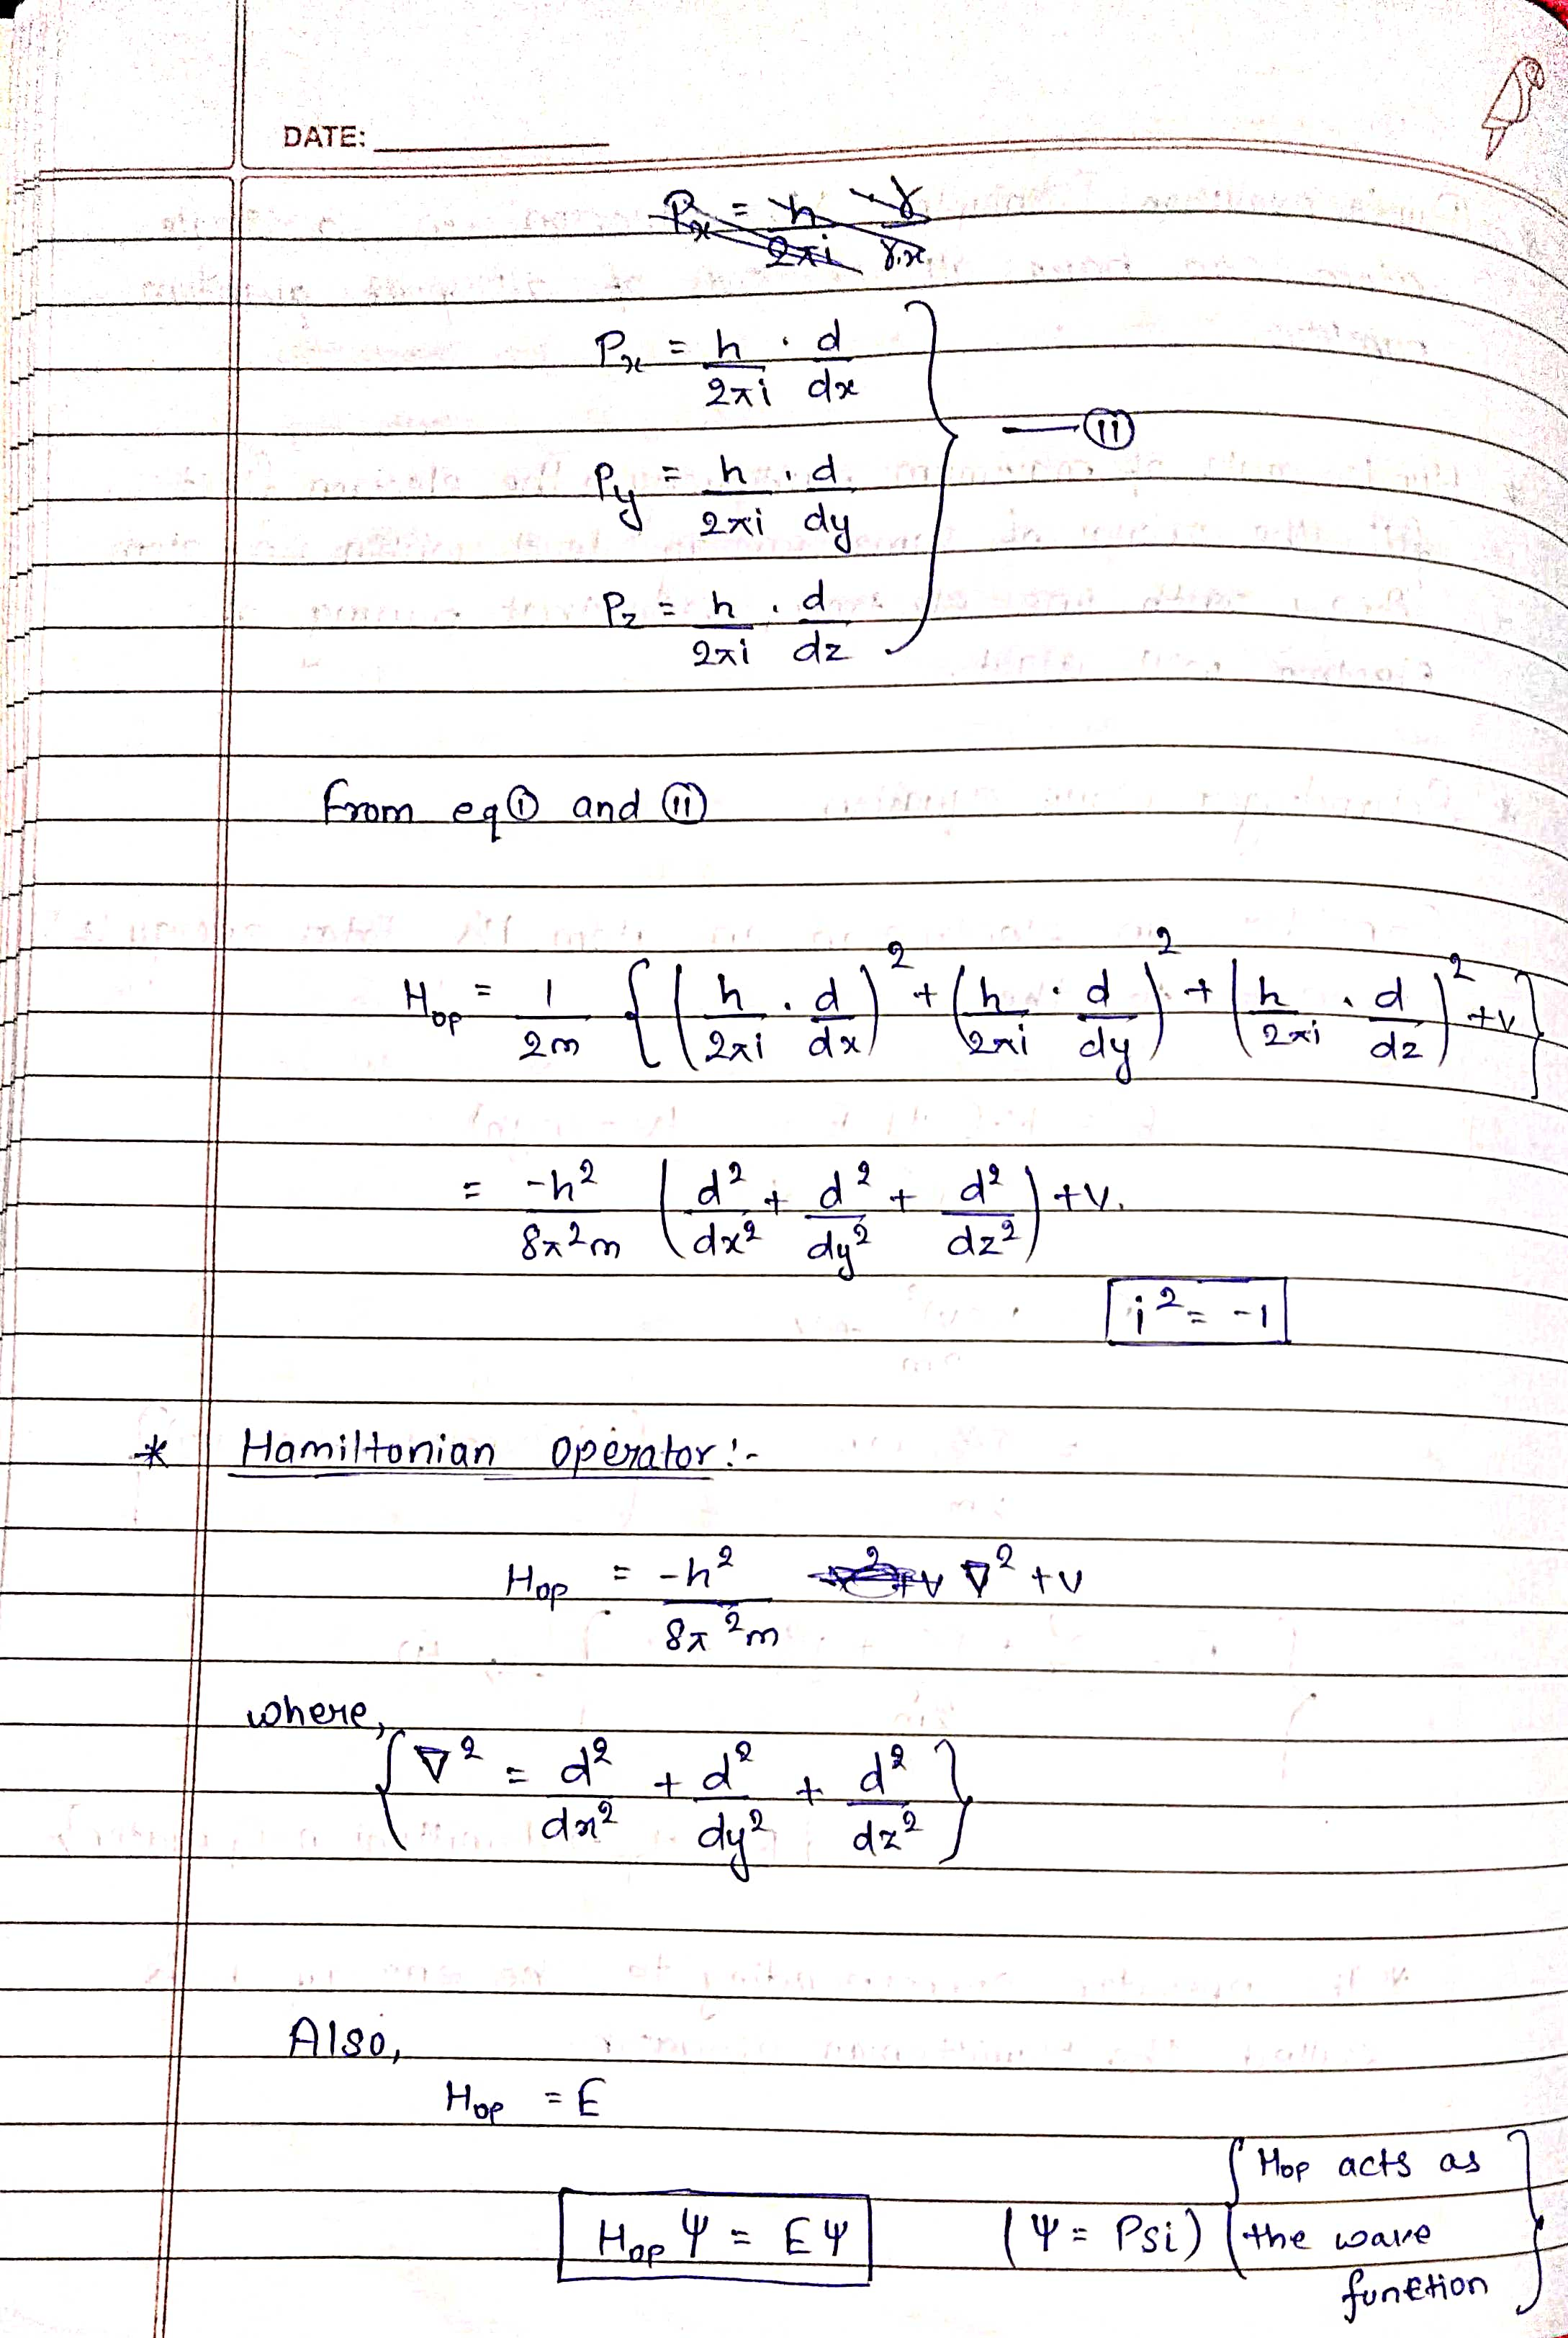 DATE:
Px = h/2πi · d/dx
Py = h/2πi · d/dy — (ii)
Pz = h/2πi · d/dz
From eq (i) and (ii)
Hop = 1/2m { (h/2πi · d/dx)² + (h/2πi · d/dy)² + (h/2πi · d/dz)² + V }
= -h²/8π²m (d²/dx² + d²/dy² + d²/dz²) + V.
i² = -1
* Hamiltonian Operator :-
Hop = -h²/8π²m ∇² + V
where,
{ ∇² = d²/dx² + d²/dy² + d²/dz² }
Also,
Hop = E
Hop Ψ = EΨ (Ψ = Psi) { Hop acts as
the wave
function }